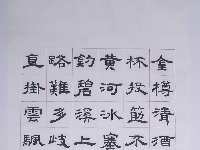 金樽清酒
杯投筯不
黃河冰塞
釣碧溪上
路難多岐
直掛雲颿